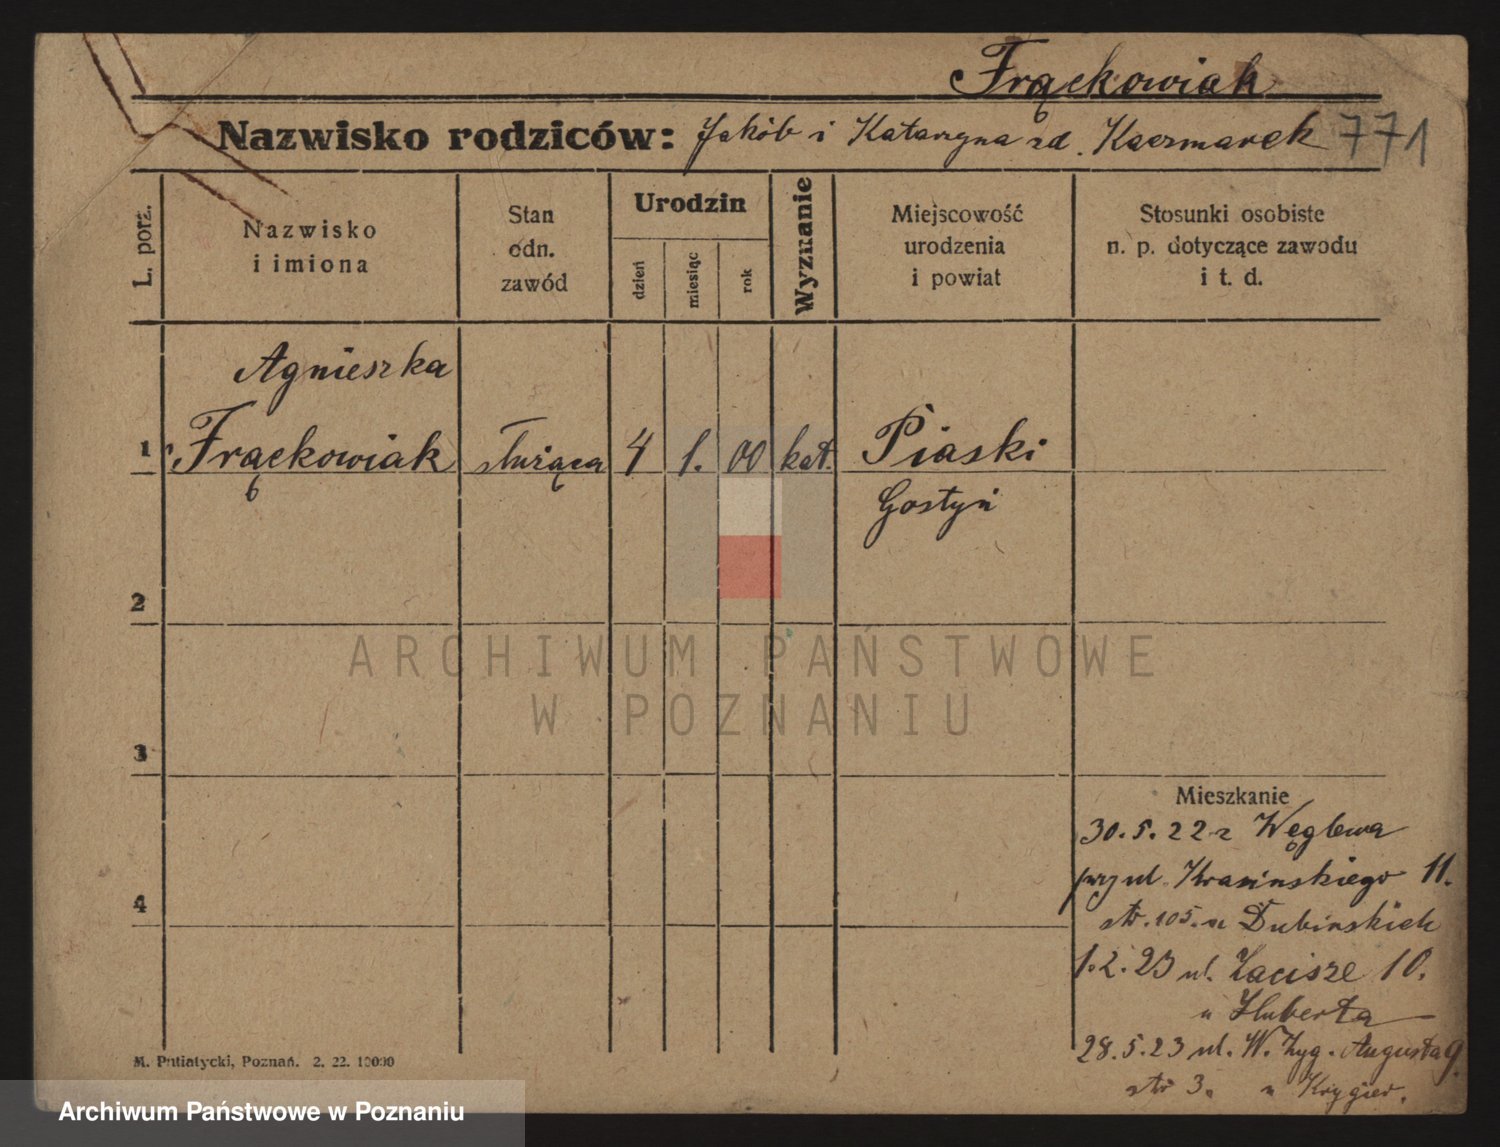 Frąckowiak
Nazwisko rodziców: Jakób i Katarzyna zd. Kaczmarek 771
L. porz.
Nazwisko
i imiona
Stan
odn.
zawód
Urodzin
dzień
miesiąc
rok
Wyznanie
Miejscowość
urodzenia
i powiat
Stosunki osobiste
n. p. dotyczące zawodu
i t. d.
Agnieszka
1 Frąckowiak służąca 4 1. 00 kat. Piaski
Gostyń
2
ARCHIWUM PAŃSTWOWE
W POZNANIU
3
Mieszkanie
30. 5. 22 z Węglewa
przy ul. Krasinskiego 11.
str. 105. u Dubinskich
4
1. 2. 23 ul. Zacisze 10.
u Huberta
28. 5. 23 ul. W. Zyg. Augusta 9.
str 3. u Krygier.
M. Putiatycki, Poznań. 2. 22. 10000
Archiwum Państwowe w Poznaniu